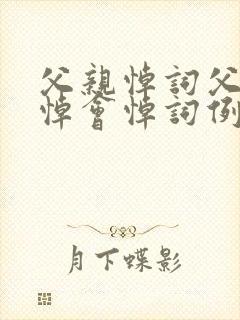 父親悼詞父
悼會悼詞例
月下蝶影